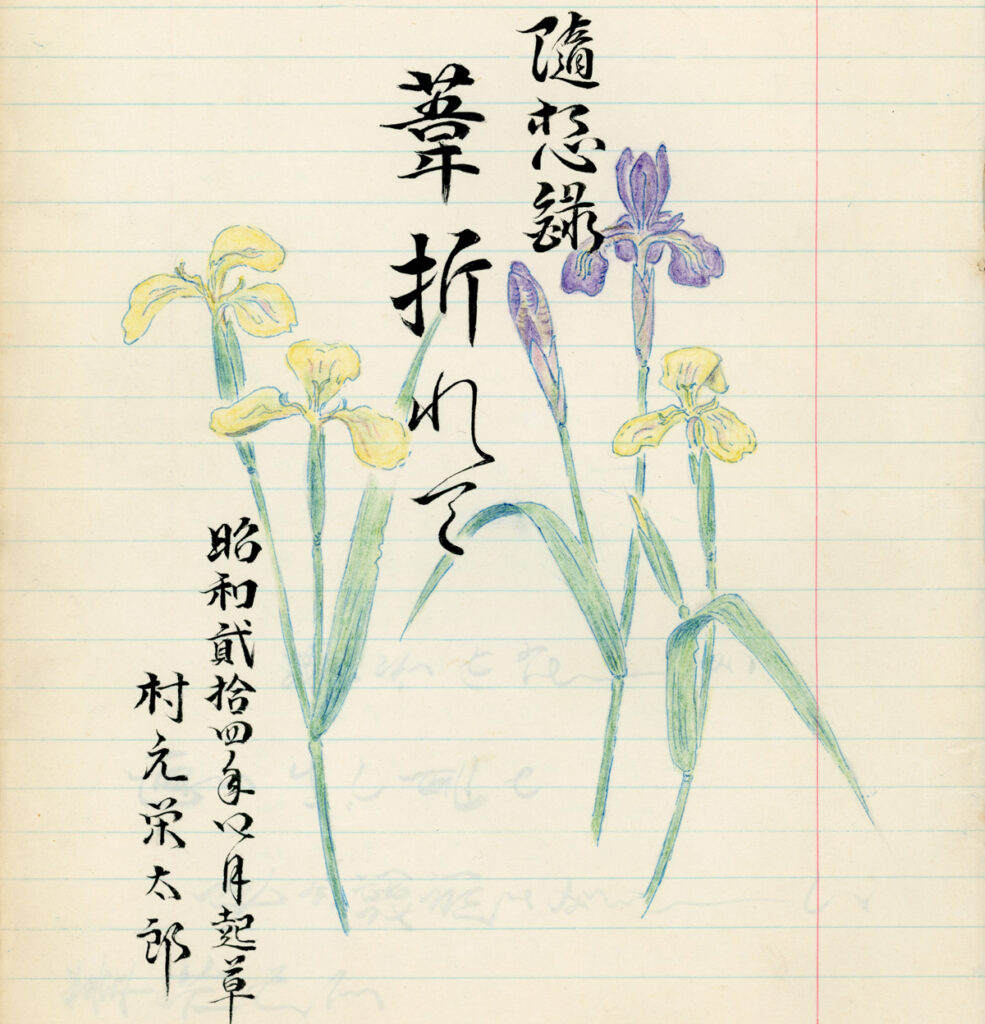 隨想錄
葦折れて
昭和貳拾四年四月起草
村元栄太郎